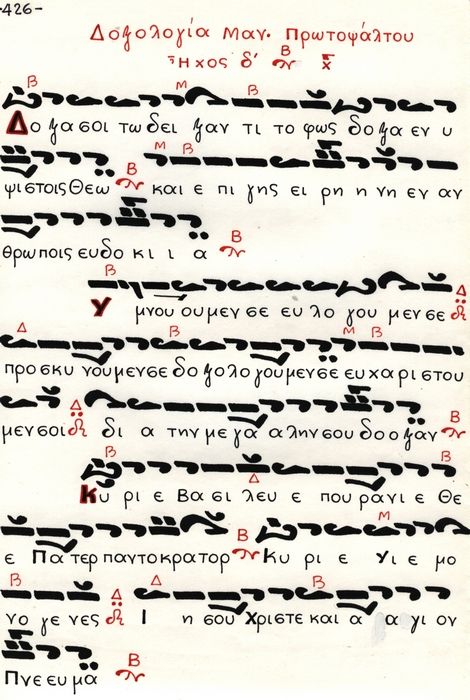 -426-
Δοξολογία Μαν. Πρωτοψάλτου
Ἦχος δ΄ Β χ
Β Μ Β
Δο ξα σοι τω δει ξαν τι το φως δο ξα εν υ
Μ Β
ψιστοις Θεω Β και ε πι γης ει ρη η νη εν αν
θρωποις ευ δο κι ι α Β
Β
Υ μνου ου μεν σε ευ λο γου μεν σε Δ
Δ Β Μ Β
προσκυ νουμενσε δο ξολο γουμενσε ευ χαριστου
μεν σοι Δ δι α την με γα α λην σου δο ο ξαν Β
Β Δ Β
Κυ ρι ε Βα σι λευ ε που ρανι ε Θε
Μ
ε Πα τερ παντοκρατορ Β Κυ ρι ε Υι ε μο
Β Δ Β
νο γε νες Δ Ι η σου Χριστε και α α γι ον
Πνε ευ μα Β